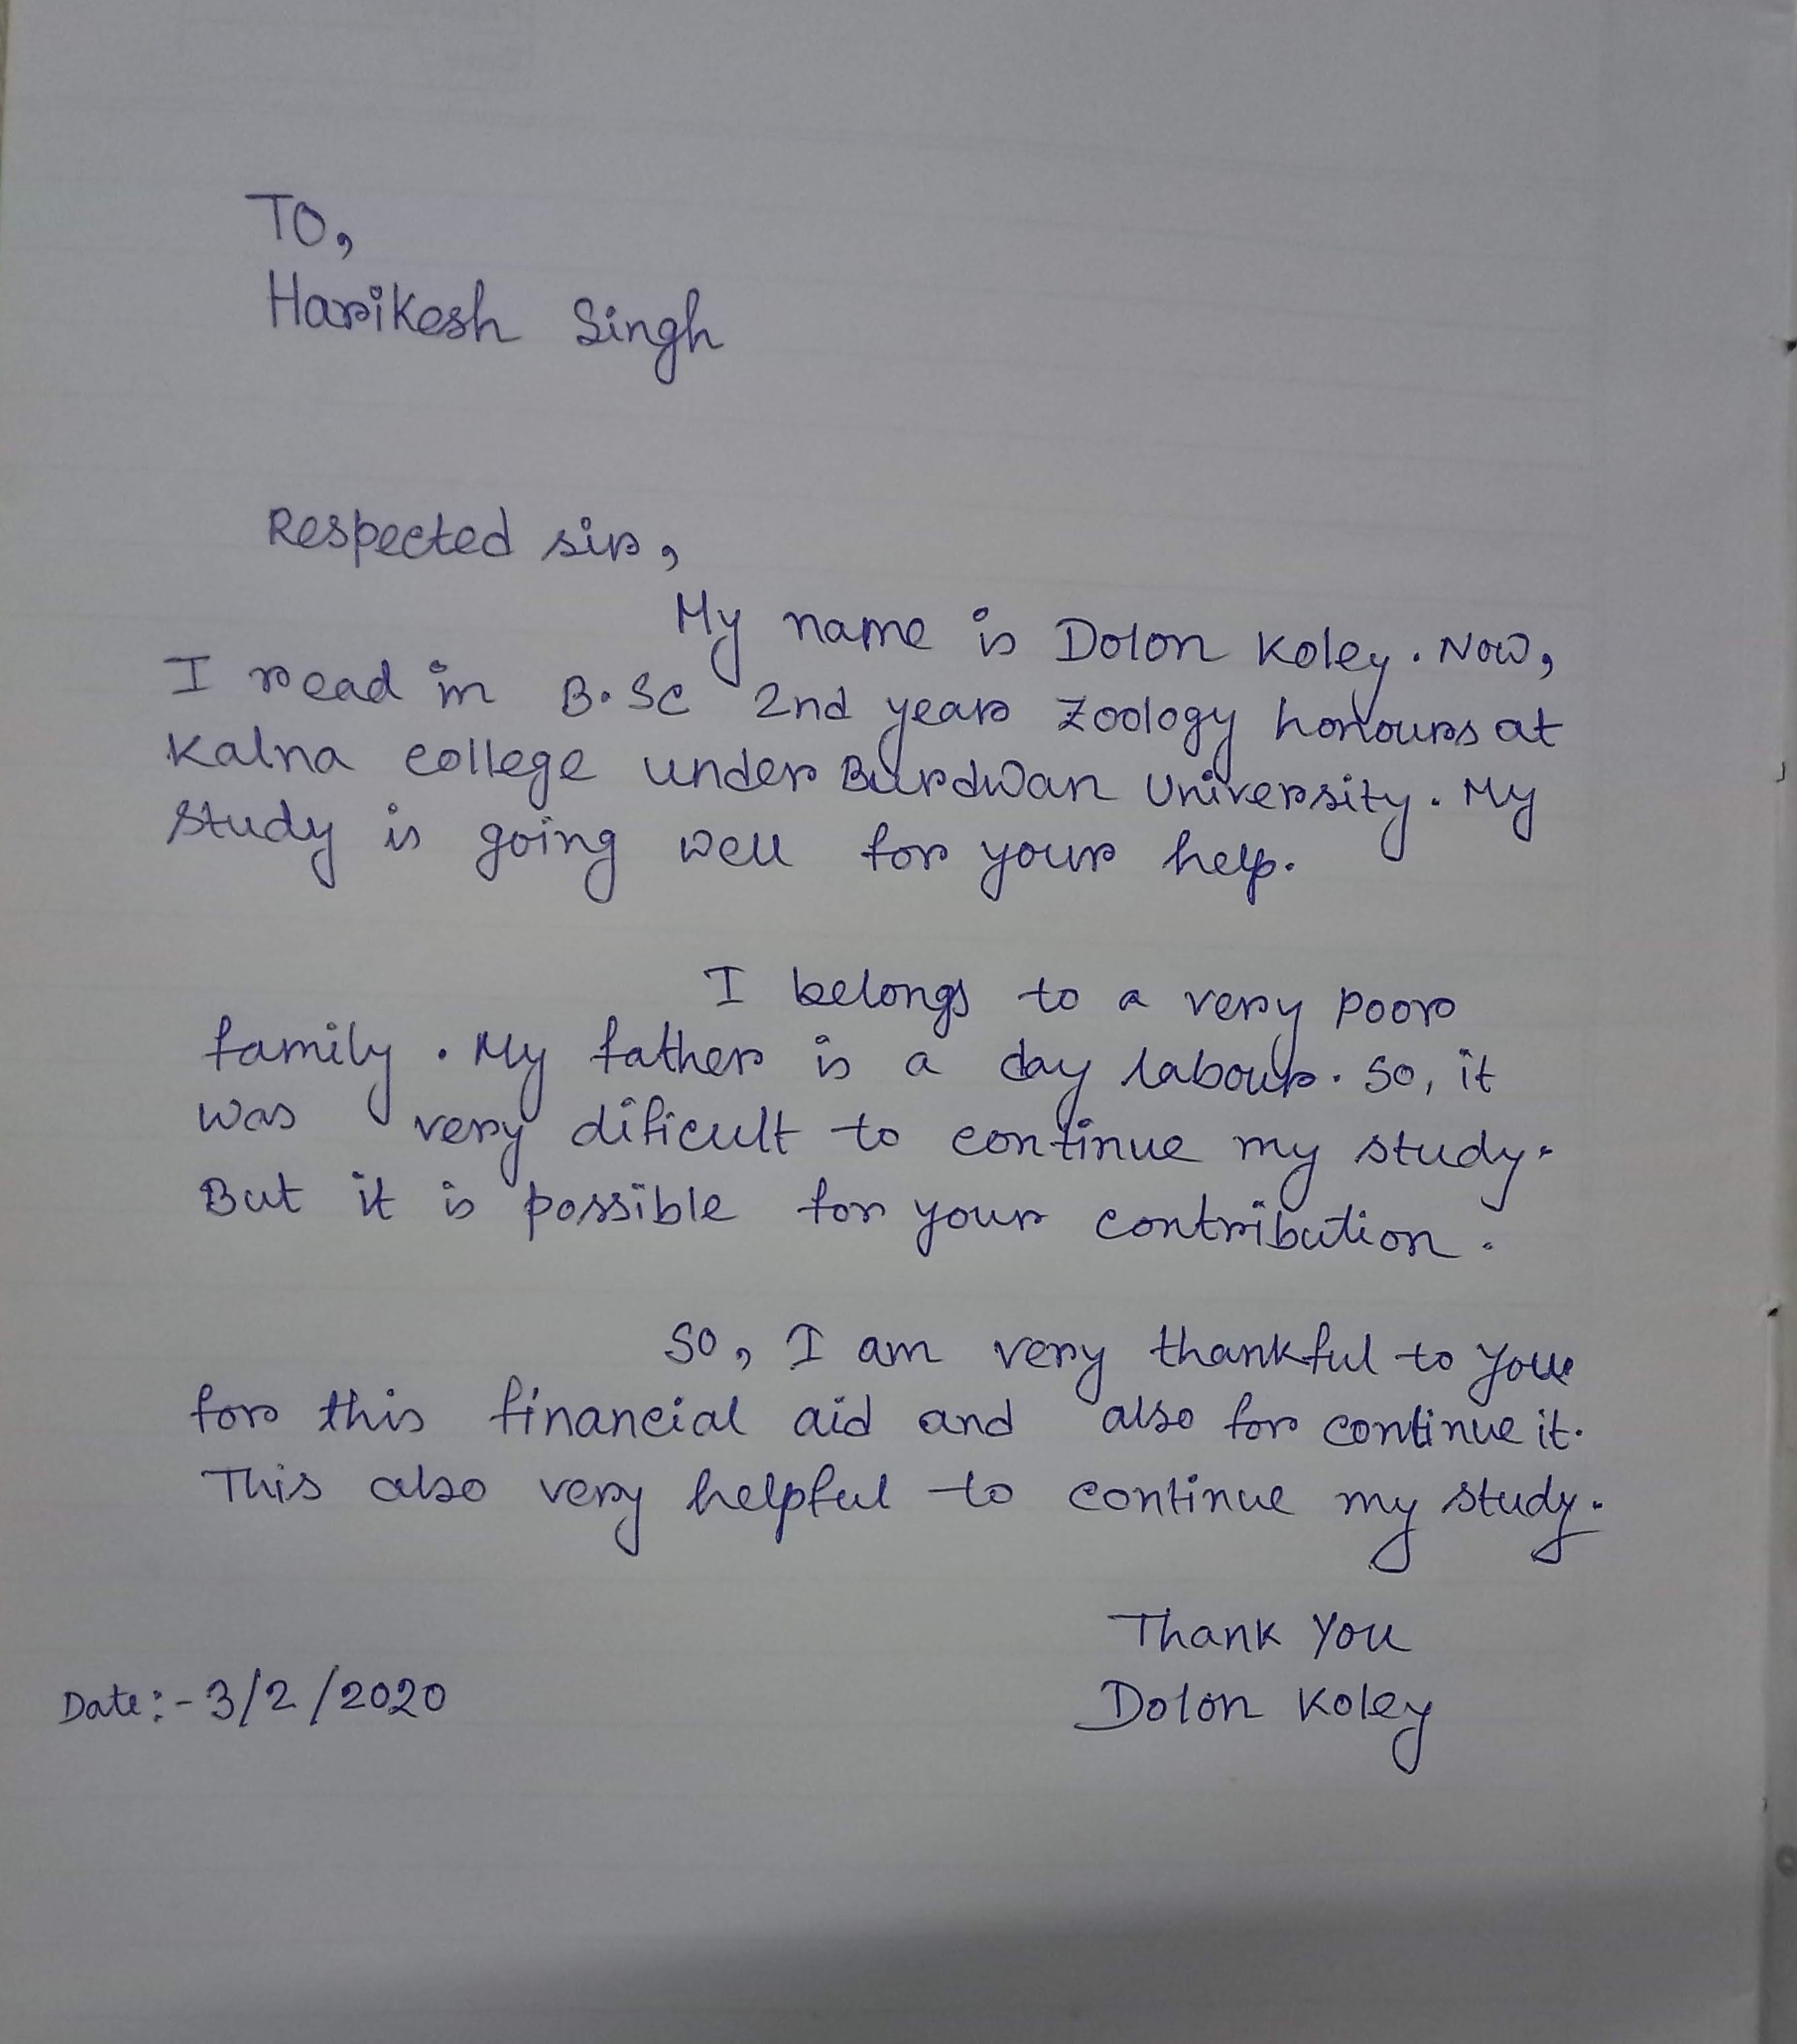 TO,
Harikesh Singh
Respected sir,
My name is Dolon Koley. Now,
I read in B.Sc 2nd year Zoology honours at
Kalna college under Burdwan University. My
study is going well for your help.
I belongs to a very poor
family. My father is a day labour. So, it
was very dificult to continue my study.
But it is possible for your contribution.
So, I am very thankful to you
for this financial aid and also for continue it.
This also very helpful to continue my study.
Thank You
Date:- 3/2/2020
Dolon Koley